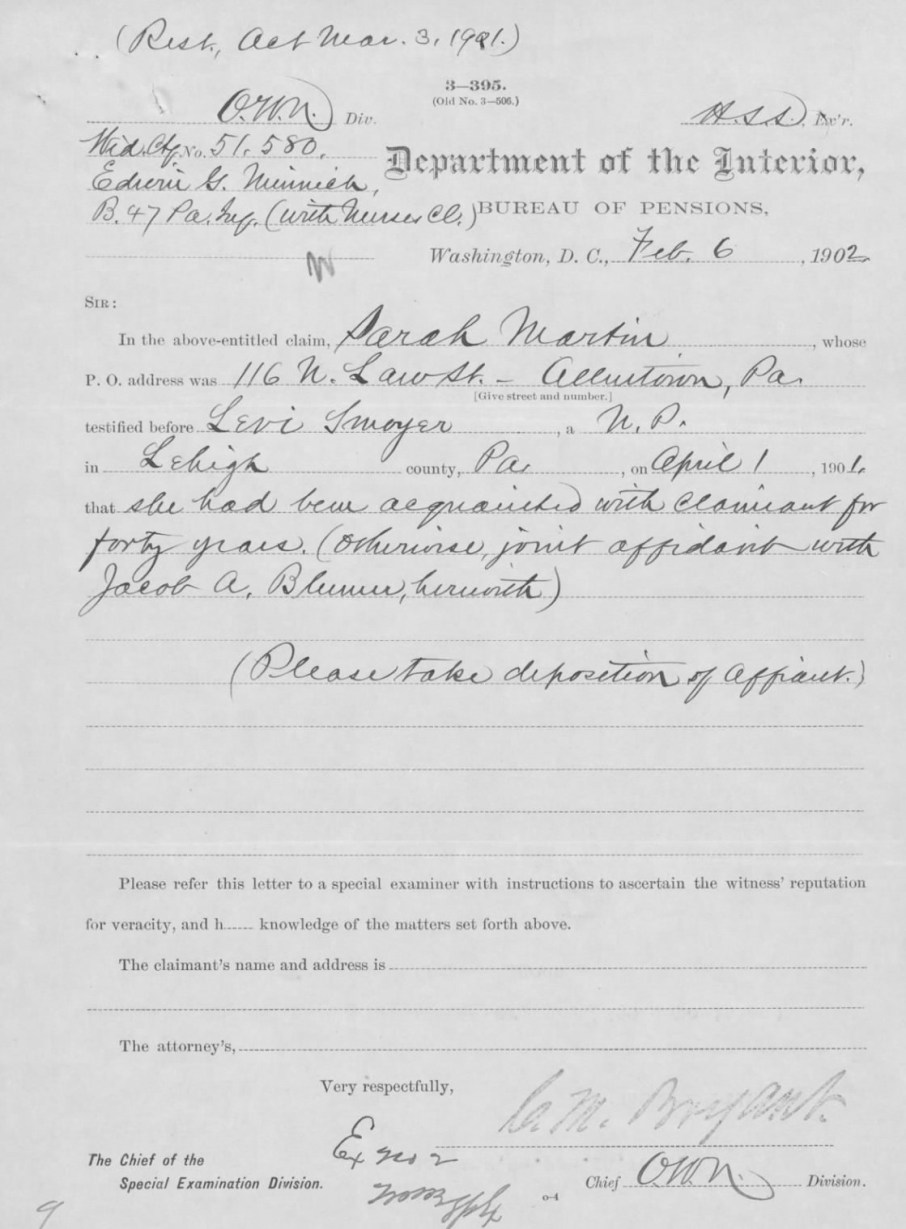 (Rest, Act Mar. 3, 1901.)
3—395.
(Old No. 3—506.)
O.W.N. Div.
H.S.S. Ex'r.
Wid. Ctf. No. 51,580.
Department of the Interior,
Edwin G. Minnich,
B. 47 Pa. Inf. (with Nurses Cl.)
BUREAU OF PENSIONS,
Washington, D. C., Feb. 6, 1902.
SIR:
In the above-entitled claim, Sarah Martin, whose
P. O. address was 116 N. Law St. – Allentown, Pa.
[Give street and number.]
testified before Levi Smoyer, a N. P.
in Lehigh county, Pa., on April 1, 1901,
that she had been acquainted with claimant for
forty years. (Otherwise, joint affidavit with
Jacob A. Blumer, herewith)
(Please take deposition of affiant.)
Please refer this letter to a special examiner with instructions to ascertain the witness' reputation
for veracity, and h...... knowledge of the matters set forth above.
The claimant's name and address is
The attorney's,
Very respectfully,
C. M. Bryant.
Ex no 2
The Chief of the
Special Examination Division.
o-4
Chief O.W.N. Division.
9